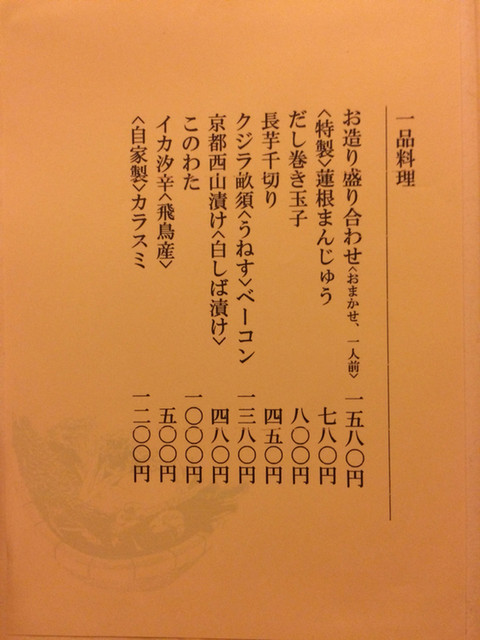 一品料理
お造り盛り合わせ<おまかせ、一人前> 一五八〇円
<特製>蓮根まんじゅう 七八〇円
だし巻き玉子 八〇〇円
長芋千切り 四五〇円
クジラ畝須<うねす>ベーコン 一三八〇円
京都西山漬け<白しば漬け> 四八〇円
このわた 一〇〇〇円
イカ汐辛<飛鳥産> 五〇〇円
<自家製>カラスミ 一二〇〇円